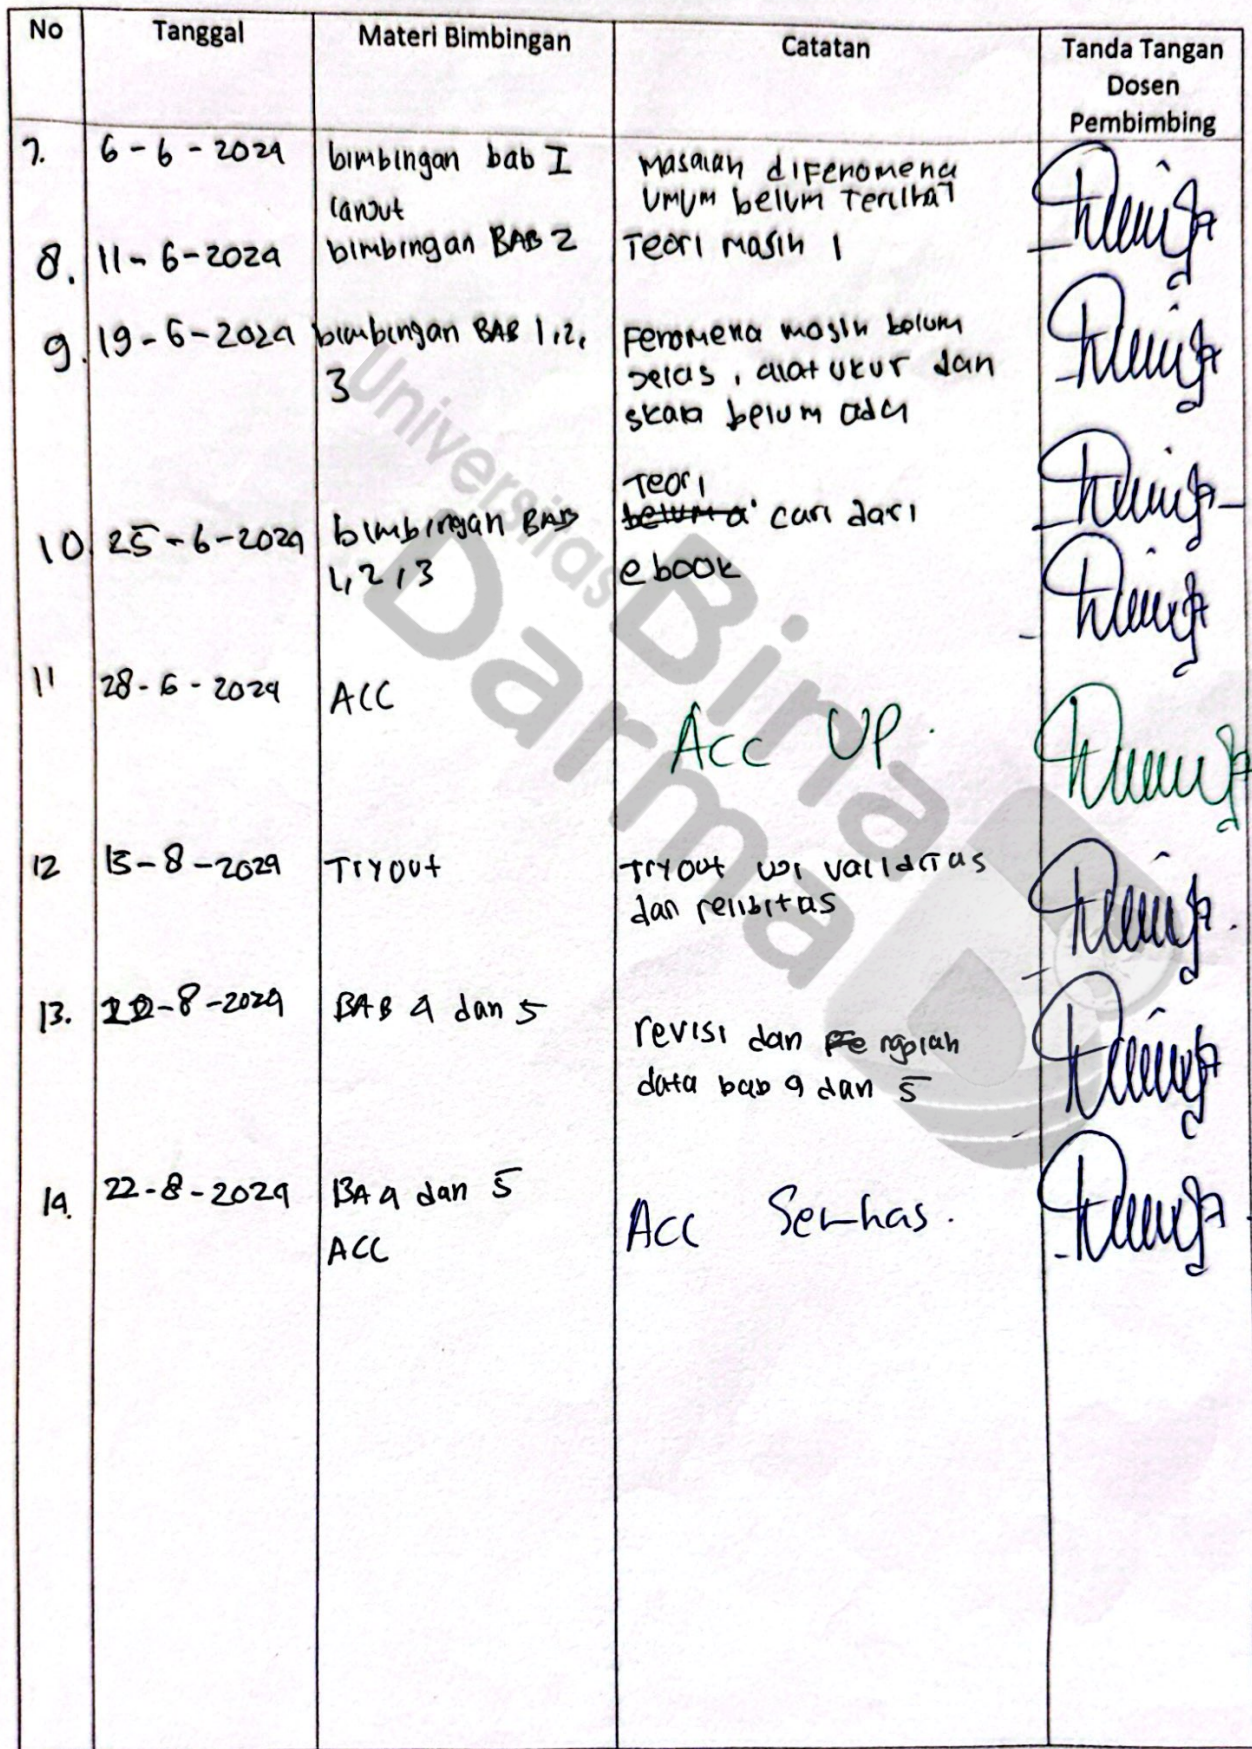 No Tanggal Materi Bimbingan Catatan Tanda Tangan
Dosen
Pembimbing
7. 6-6-2024 bimbingan bab I masalah difenomena
umum belum terlihat
lanjut
8. 11-6-2024 bimbingan BAB 2 Teori masih 1
9. 19-6-2024 bimbingan BAB 1,2, Fenomena masih belum
3 jelas, alat ukur dan
skala belum ada
Teori
10 25-6-2024 bimbingan BAB cari dari
1,2,3 ebook
11 28-6-2024 ACC
Acc UP.
12 15-8-2024 Tryout Tryout uji validitas
dan relibitas
13. 20-8-2024 BAB 4 dan 5
revisi dan
data bab 4 dan 5
14. 22-8-2024 BA 4 dan 5
ACC
Acc Semhas.
Universitas
Bina
Darma